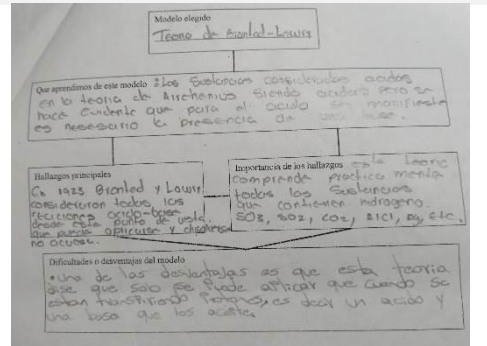 Modelo elegido
Teoria de Bronted-Lowis
Que aprendimos de este modelo : Las Sustancias consideradas acidas
en la teoria de Arrhenius siendo acidas pero se
hace evidente que para el acido se manifieste
es necesario la presencia de una base.
Hallazgos principales
En 1923 Bronted y Lowis
consideraron todas las
reacciones acido-base
desde este punto de vista
que puede aplicarse y
no acuosa.
Importancia de los hallazgos esta teoria
comprende practica menta
todas las Sustancias
que contienen hidrogeno.
SO3, SO2, CO2, etc.
Dificultades o desventajas del modelo
•una de las desventajas es que esta teoria
dise que solo se puede aplicar que cuando se
estan transfiriendo protones, es decir un acido y
una basa que los acepte.